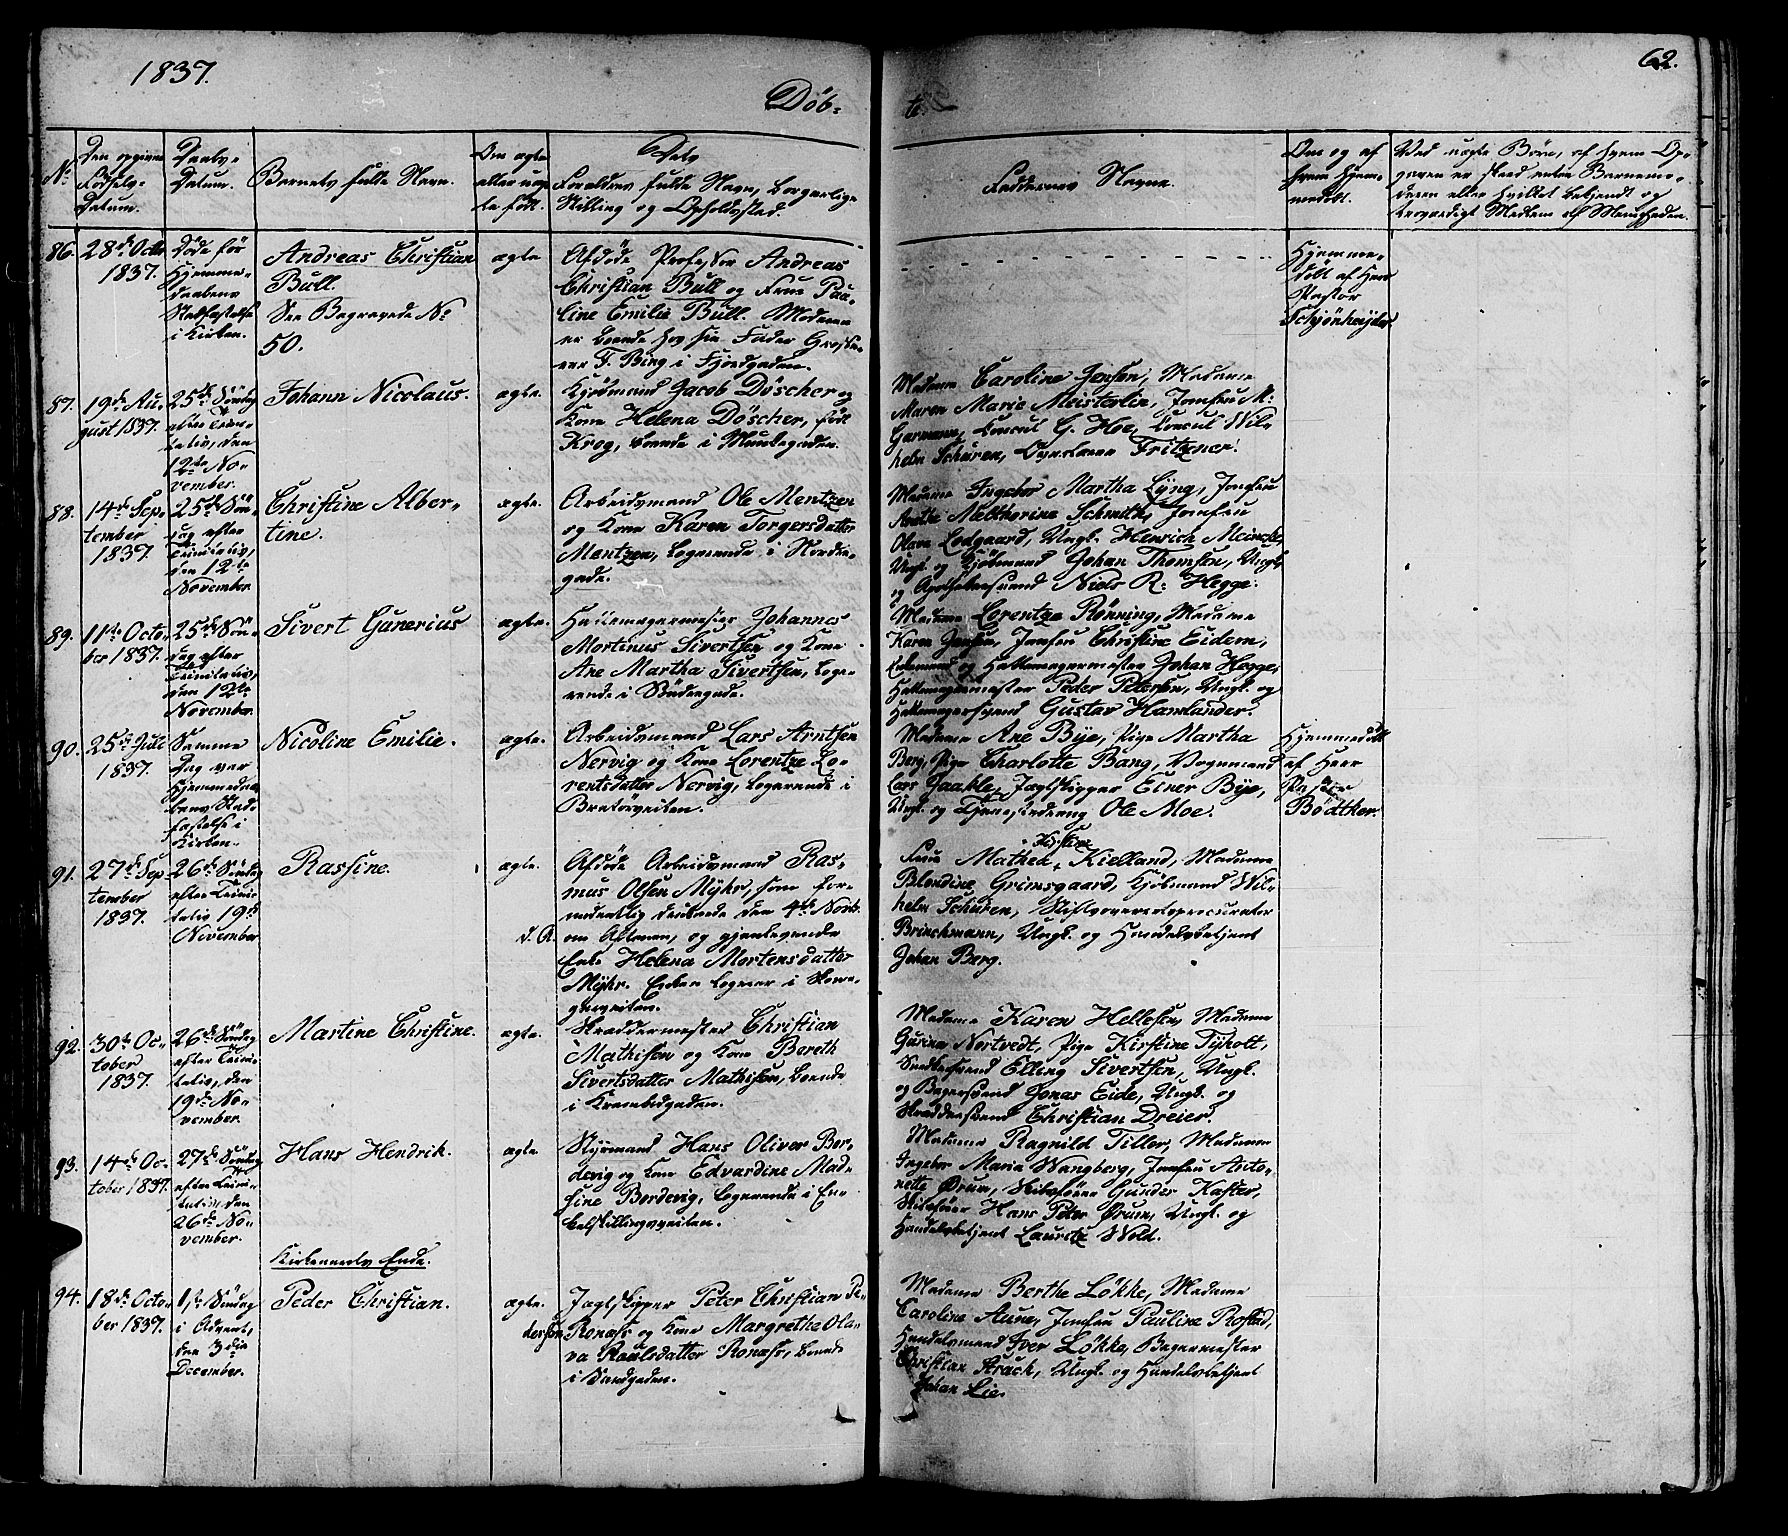 1837.
62.
Döb-
te.
No
Den opgivne Födsels- Datum.
Daabs- Datum.
Barnets fulde Navn.
Om ægte eller uæg- te født.
Dets Forældres fulde Navn, borgerlige Stilling og Opholdssted.
Faddernes Navne.
Om og af hvem hjem- medöbt.
Ved uægte Börn, af hvem Op- gaven er skeed enten Barnemo- deren eller hvilket bekjendt og troværdigt Medlem af Menigheden.
86.
28de Octbr
1837.
Döde för
Hjemme-
daabens
Stadfæstelse
i Kirken.
Andreas Christian
Bull.
See Begravede No
50.
ægte
Afdöde Professor Andreas
Christian Bull og Frue Pau-
line Emilie Bull. Moderen
er boende hos sin Fader Gross-
erer F. Bing i Fjordgaden.
Hjemme-
döbt af Herr
Pastor
Schjönheyder
87.
19de Au-
gust 1837.
25de Söndag
efter Trini-
tatis, den
12te No-
vember.
Johann Nicolaus.
ægte.
Kjöbmand Jacob Döscher og
Kone Helena Döscher, född
Krog, boende i Munkegaden.
Madame Caroline Jensen, Madame
Maren Marie Meisterlin, Jomfru M.
Garmann, Consul G. Hoe, Consul Wil-
helm Schüren, Fritzner.
88.
14de Sep-
tember
1837.
25de Sön-
dag efter
Trinitatis,
den 12te
November
Christine Alber-
tine.
ægte.
Arbeidsmand Ole Mentzen
og Kone Karen Torgersdatter
Mentzen, logerende i Nordre-
gade.
Madame Ingebor Martha Lyng, Jomfru
Anethe Methorine Schmith, Jomfru
Olava Lodgaard, Ungk. Henrich Meincke,
Ungk. og Kjöbmand Johan Thomsen, Ungk.
og Apothekersvend Niels R. Hegge.
89.
11te Octo-
ber 1837.
25de Sön-
dag efter
Trinitatis,
den 12te
November.
Sivert Gunerius
ægte.
Hattemagermester Johannes
Mortinus Sivertsen og Kone
Ane Martha Sivertsen, loge-
rende i Söndregade.
Madame Lorentze Rönning, Madame
Karen Jensen, Jomfru Christine Eidem,
Enkemand og Hattemagermester Johan Hegge,
Hattemagermester Peder Petersen, Ungk. og
Hattemagersvend Gustav Hamlander.
90.
25de Juli
1837.
Samme
Dag var
Hjemmedaa-
bens Stad-
fæstelse i
Kirken.
Nicoline Emilie.
ægte.
Arbeidsmand Lars Arntsen
Nervig og Kone Lorentze Lo-
rentsdatter Nervig, logerende i
Bratörveiten.
Madame Ane Bye, Pige Martha
Berg, Pige Charlotte Bang, Vognmand
Lars Gaakle, Jagtskipper Einer Bye,
Ungk. og Tjenestedreng Ole Moe.
Hjemmedöbt
af Herr
Pastor
Bödtker.
91.
27de Sep-
tember
1837.
26de Söndag
efter Trini-
tatis 19de
November
Rassine.
ægte.
d. A.
Afdöde Arbeidsmand Ras-
mus Olsen Myhr, som for-
modentlig druknede den 4de Novb.
om Aftenen, og gjenlevende
Enke Helena Mortensdatter
Myhr. Enken logerer i
Frue Mathea Kirstine Kielland, Madame
Blondine Grimsgaard, Kjöbmand Wil-
helm Schüren, Stiftsoverretsprocurator
Brinchmann, Ungk. og Handelsbetjent
Johan Berg.
92.
30te Oc-
tober
1837.
26de Söndag
efter Trini-
tatis, den
19de No-
vember.
Martine Christine.
ægte.
Skræddermester Christian
Mathisen og Kone Bereth
Sivertsdatter Mathisen, boende
i Krambodgaden.
Madame Karen Hellesen, Madame
Gurine Nortvedt, Pige Kirstine Tyholt,
Snedkersvend Elling Sivertsen, Ungk.
og Bagersvend Jonas Eide, Ungk. og
Skræddersvend Christian Dreier.
93.
14de Oc-
tober 1837.
27de Söndag
efter Trini-
tatis, den
26de No-
vember.
Hans Hendrik.
ægte
Styrmand Hans Oliver Bor-
devig og Kone Edvardine Mad-
sine Bordevig, logerende i En-
kelskillingsveiten.
Madame Ragnild Tiller, Madame
Ingebor Maria Wangberg, Jomfru Anto-
nette Örum, Skibsförer Gunder Kaster,
Skibsförer Hans Peter Örum, Ungk. og
Handelsbetjent Lauritz Wold.
Kirkeaarets Ende.
94.
18de Octo-
ber 1837.
1ste Söndag
i Advent,
den 3die
December.
Peder Christian.
ægte.
Jagtskipper Peter Christian Pe-
dersen Ronæss og Kone Margrethe Ola-
va Roelsdatter Ronæss, boende
i Sandgaden.
Madame Berthe Lökke, Madame
Caroline Aune, Jomfru Pauline Rostad,
Handelsmand Iver Lökke, Bagermester
Christian Strack, Ungk. og Handelsbetjent
Johan Lie.